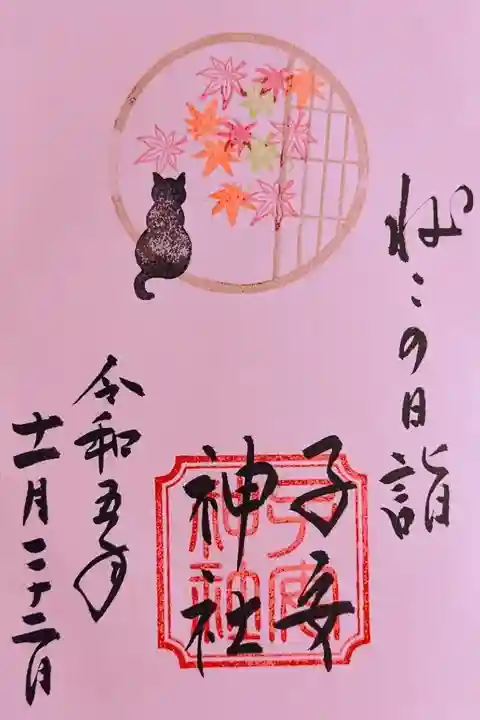 ねこの日詣
子安
神社
令和五年
十一月二十二日